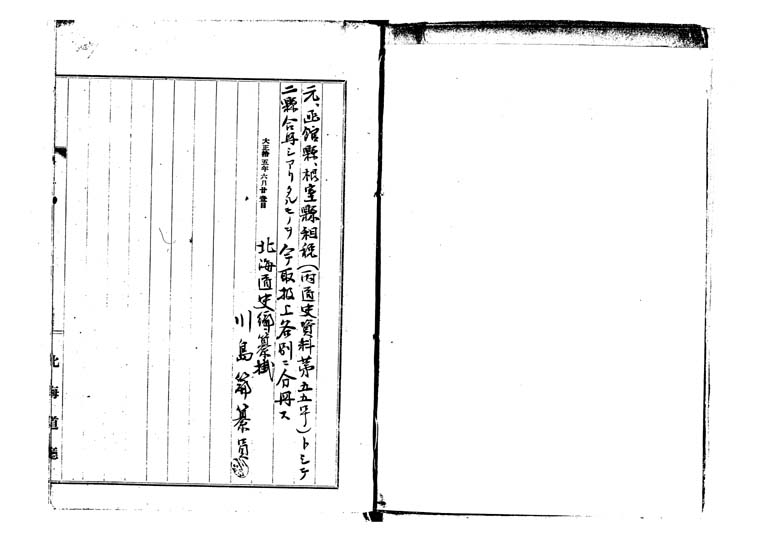 元、函館縣、根室縣租税(丙道史資料第五五号)トシテ
二縣合冊シアリタルモノヲ今取扱上各別ニ分冊ス
大正拾五年六月廿壹日
北海道史編纂掛
川島編纂員
北海道廳